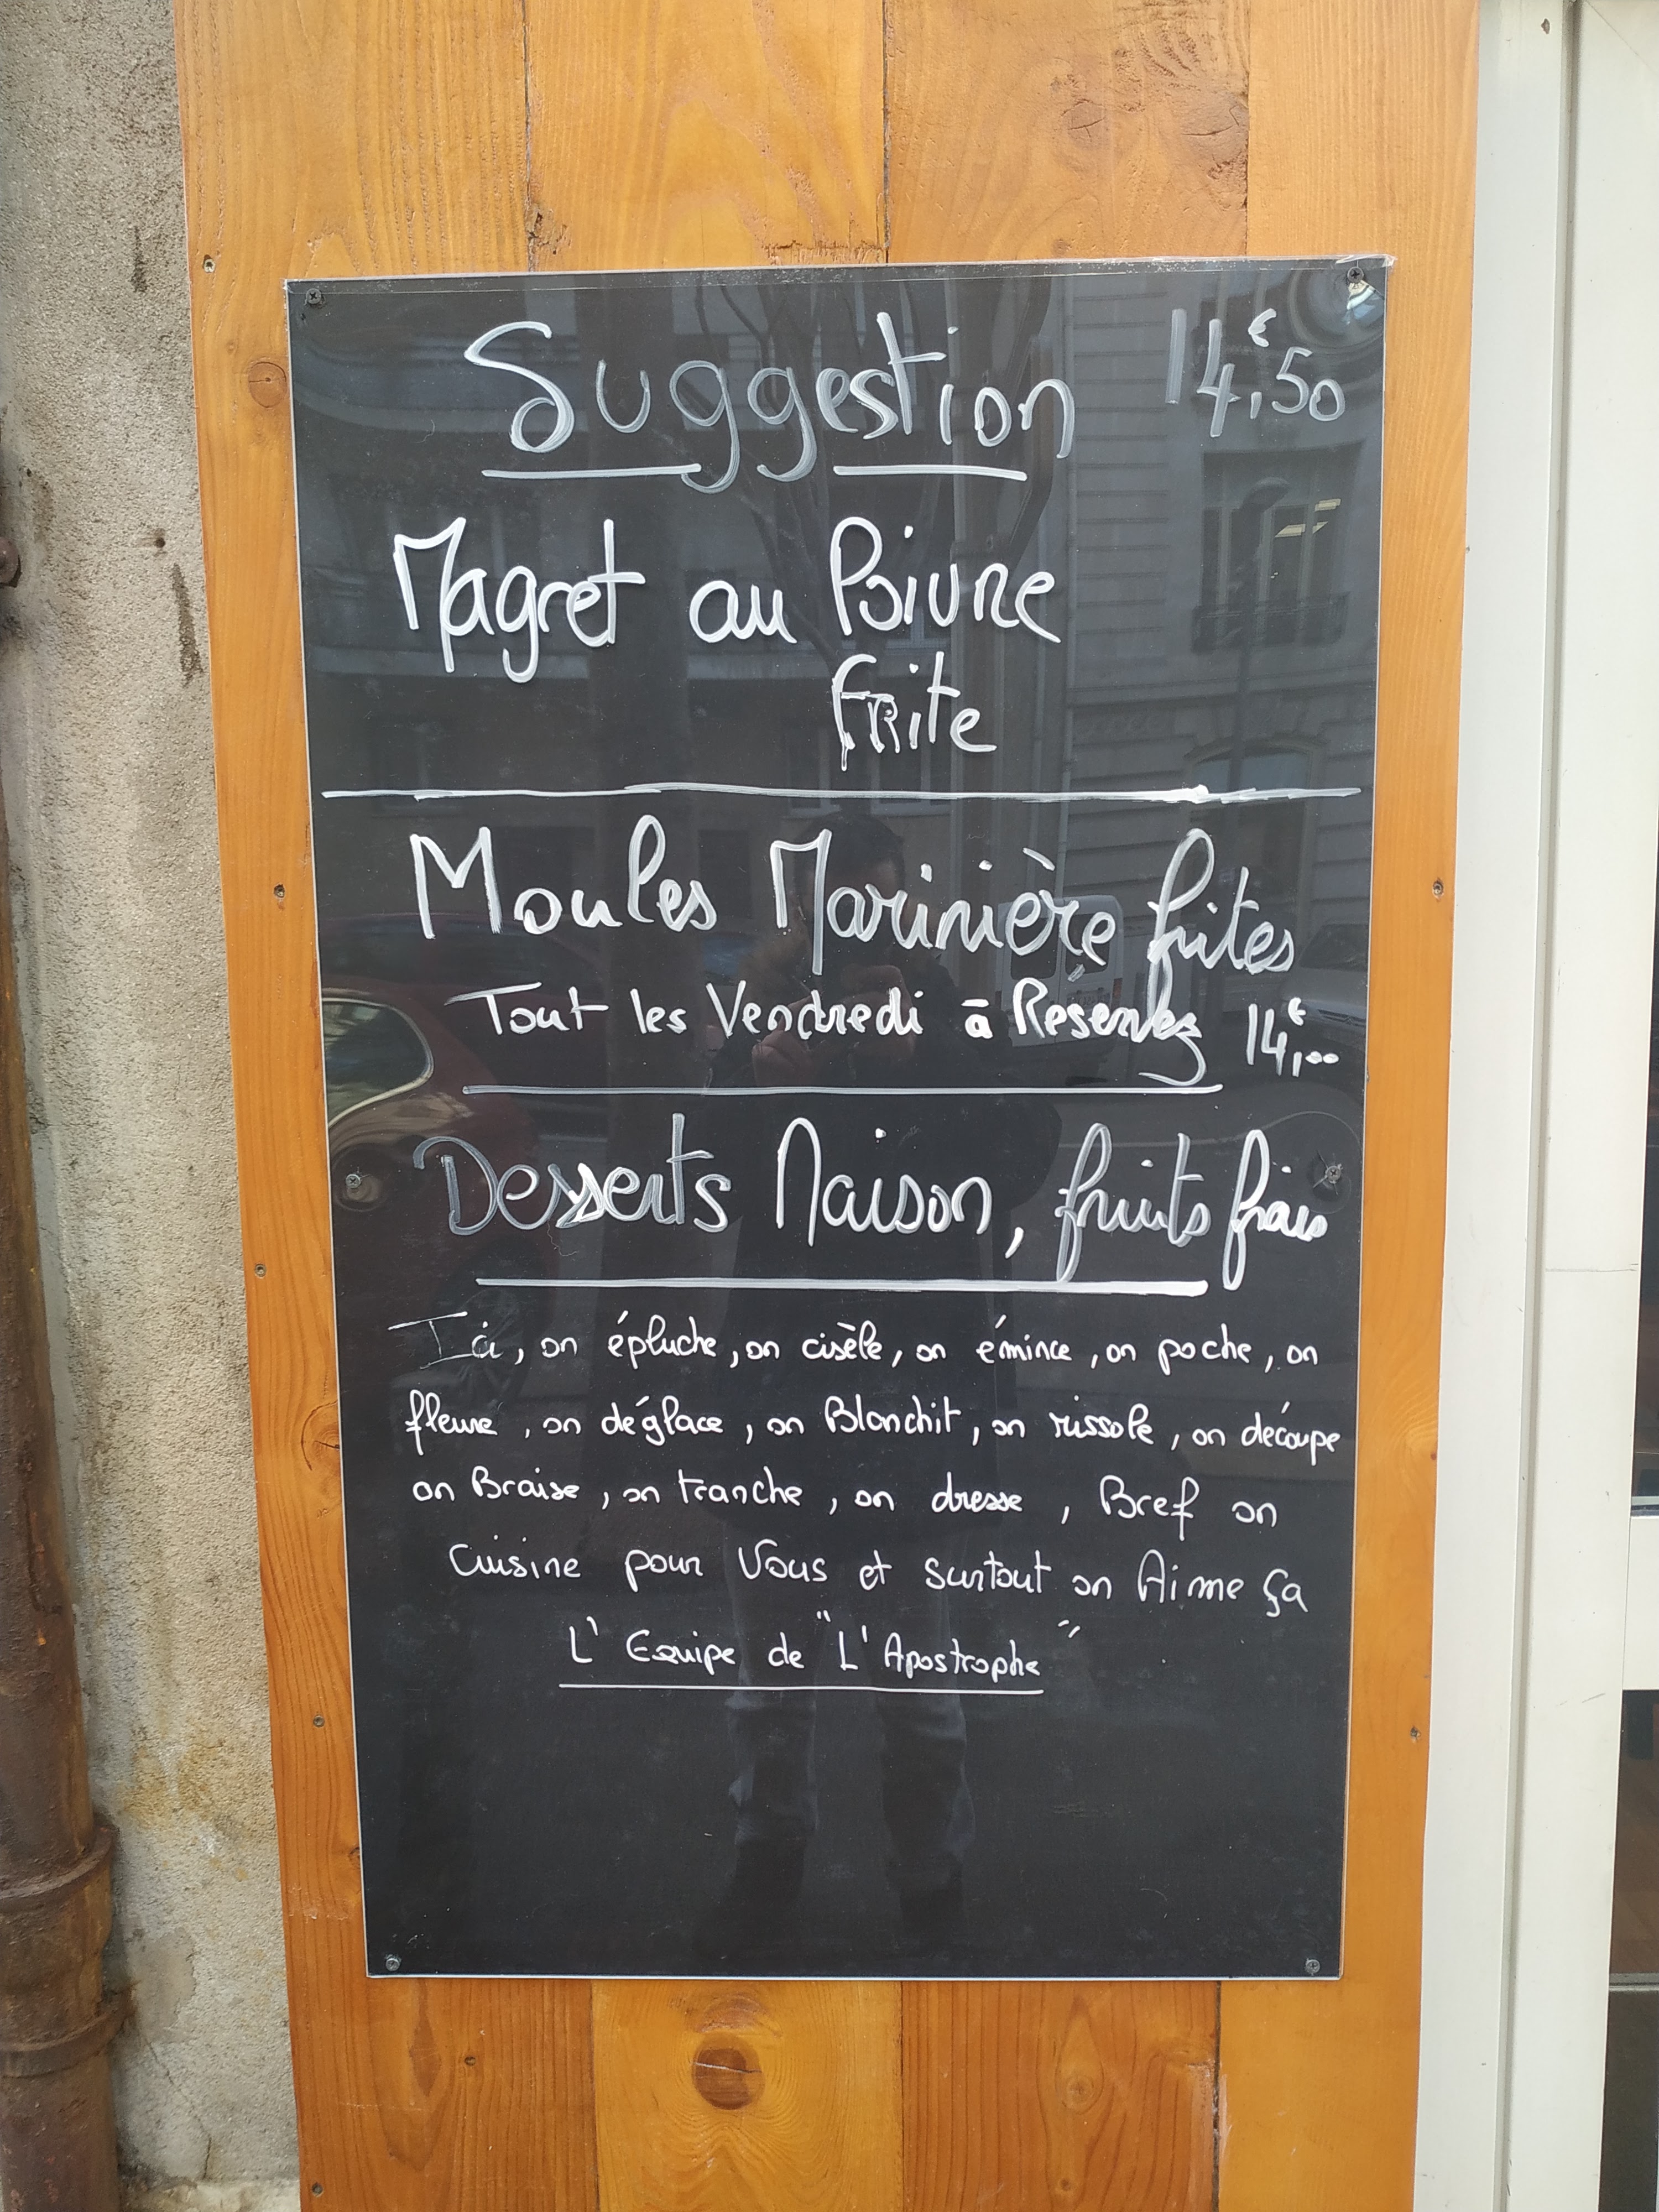 Suggestion 14€,50
Magret au Poivre
Frite
Moules Marinière frites
Tout les Vendredi à Réservez 14€,00
Desserts Maison, fruits frais
Ici, on épluche, on cisèle, on émince, on poche, on
fleure, on déglace, on Blanchit, on rissole, on découpe
on Braise, on tranche, on dresse, Bref on
Cuisine pour Vous et surtout on Aime ça
L'Equipe de "L'Apostrophe"